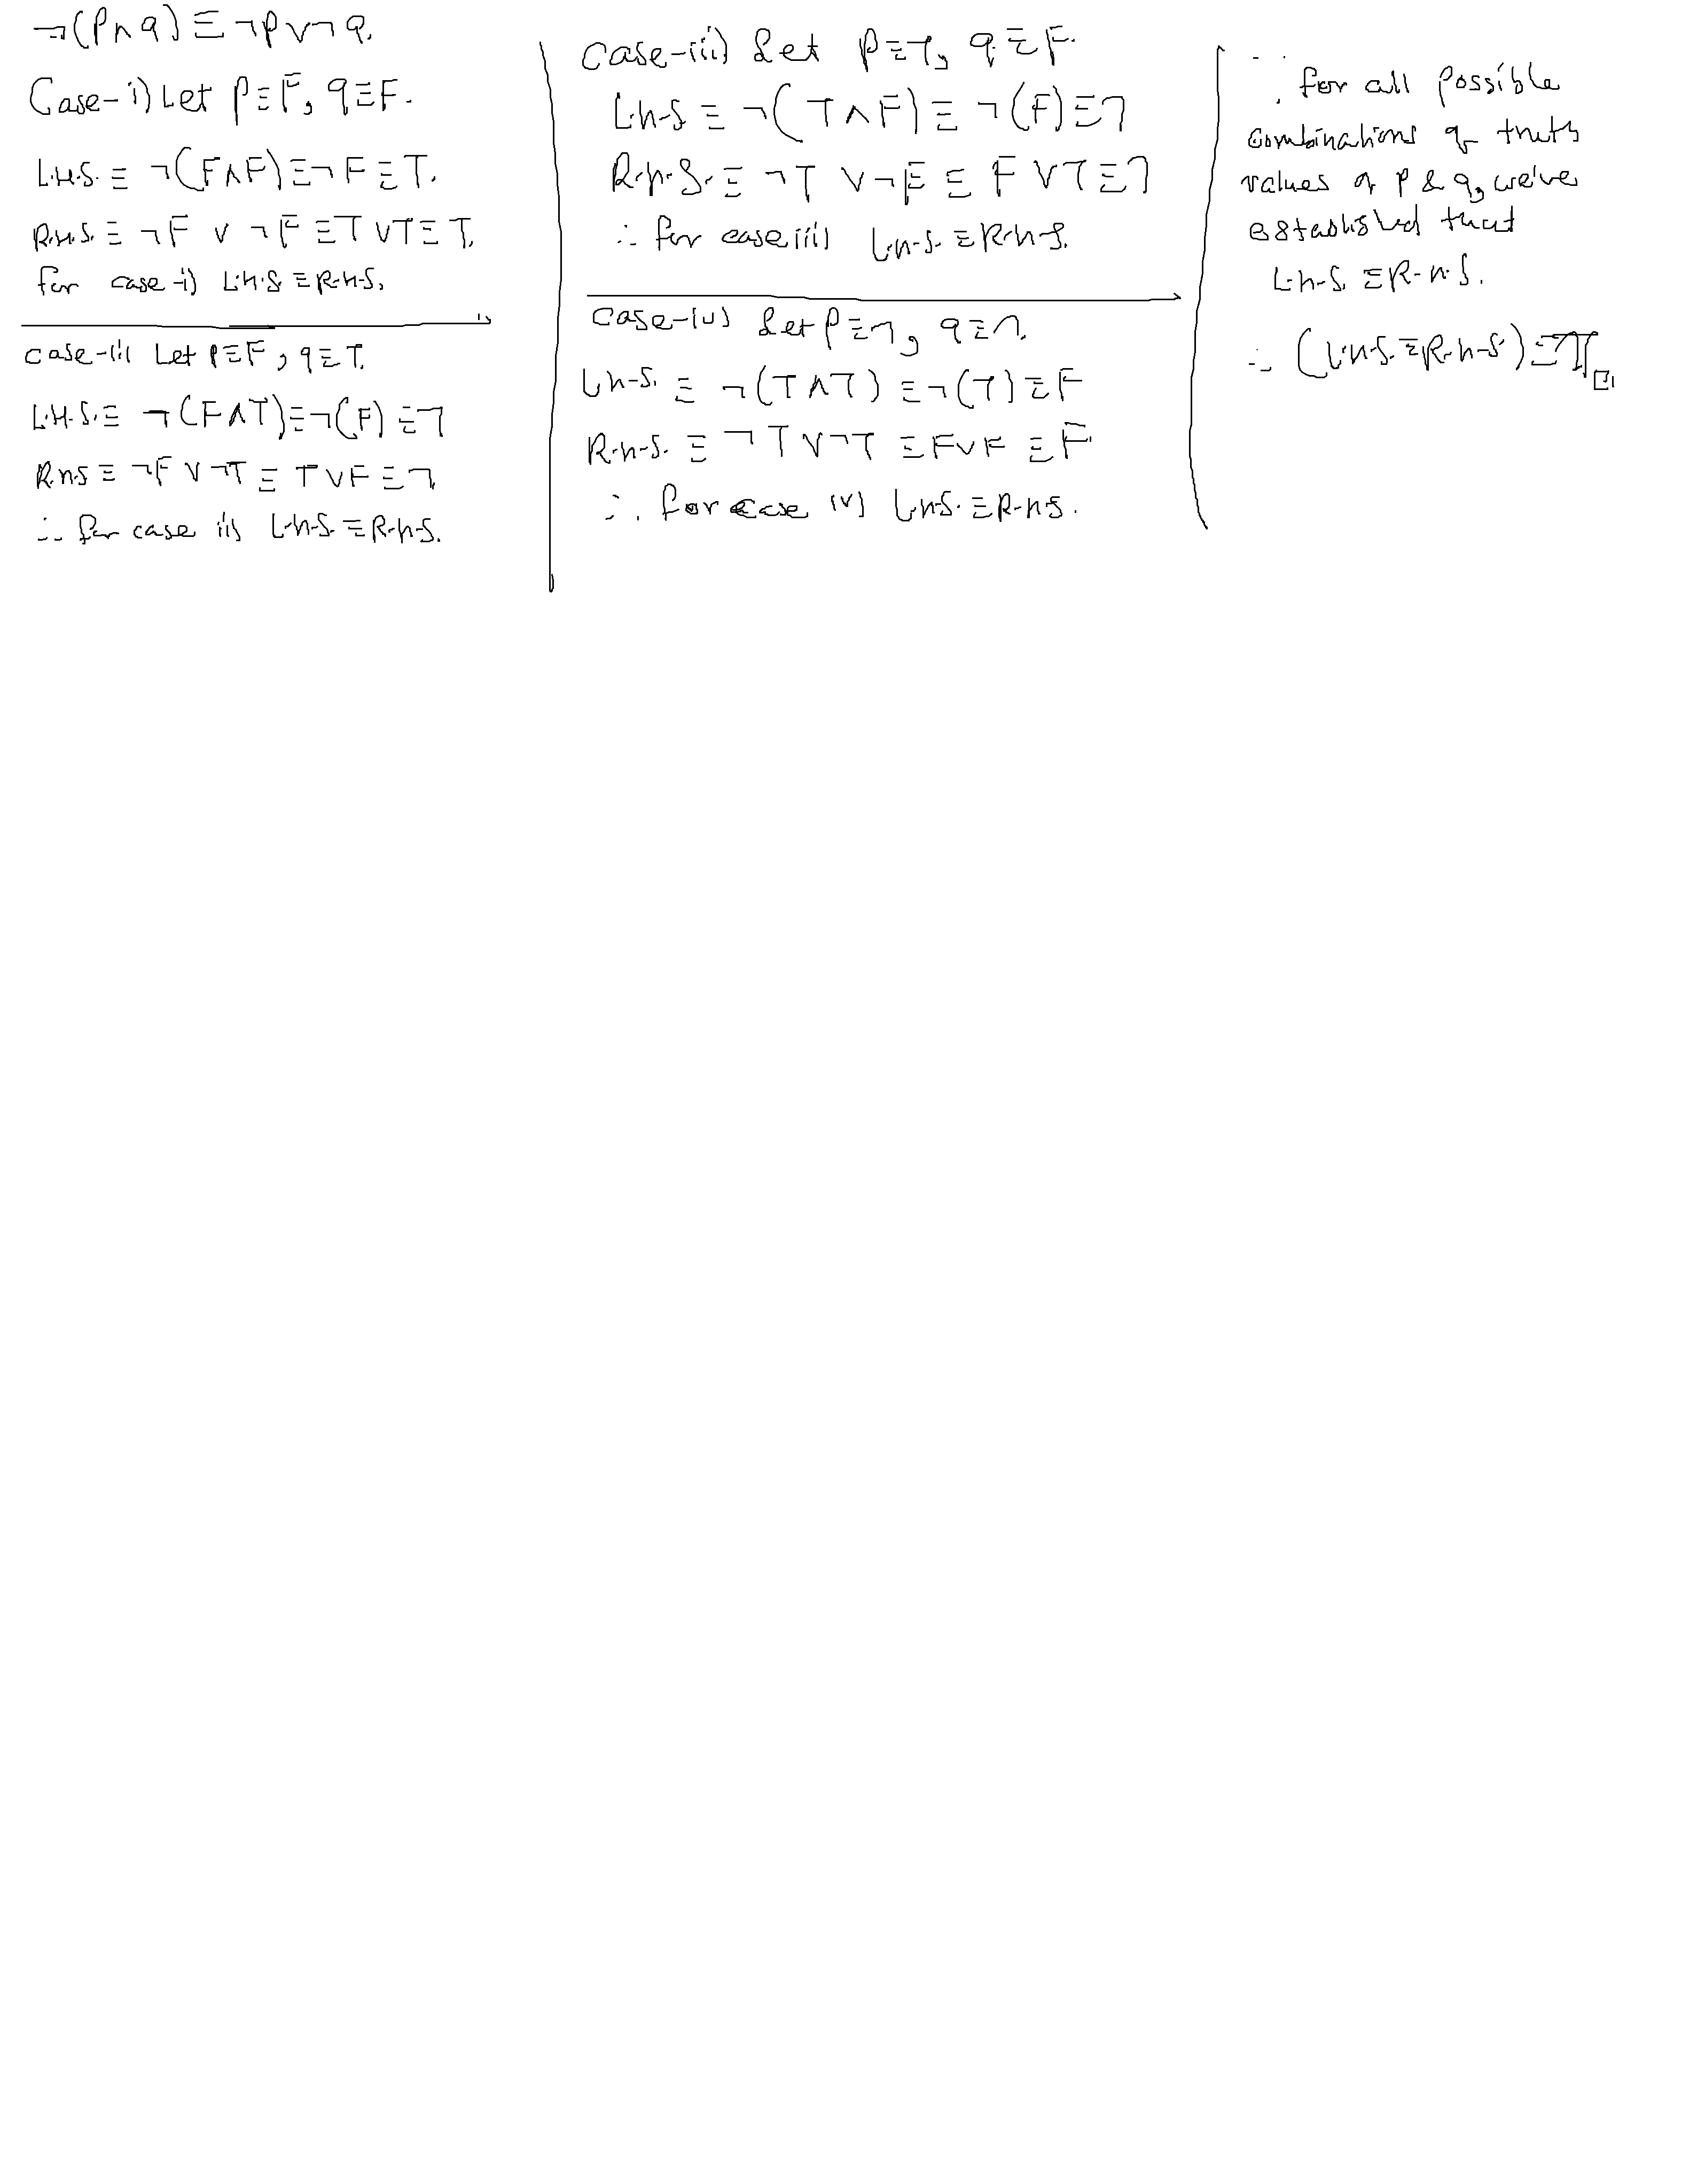 ¬(P∧q) ≡ ¬p ∨ ¬q.
Case-i) Let p≡F, q≡F.
L.H.S. ≡ ¬(F∧F) ≡ ¬F ≡ T.
R.H.S. ≡ ¬F ∨ ¬F ≡ T ∨ T ≡ T.
for case-i) L.H.S ≡ R.H.S.
case-ii) Let p≡F, q≡T.
L.H.S. ≡ ¬(F∧T) ≡ ¬(F) ≡ T
R.H.S ≡ ¬F ∨ ¬T ≡ T ∨ F ≡ T
∴ for case ii) L.H.S. ≡ R.H.S.
case-iii) Let p≡T, q≡F.
L.H.S ≡ ¬(T∧F) ≡ ¬(F) ≡ T
R.H.S. ≡ ¬T ∨ ¬F ≡ F ∨ T ≡ T
∴ for case iii) L.H.S. ≡ R.H.S.
case-iv) Let p≡T, q≡T.
L.H.S. ≡ ¬(T∧T) ≡ ¬(T) ≡ F
R.H.S. ≡ ¬T ∨ ¬T ≡ F ∨ F ≡ F
∴ for case iv) L.H.S. ≡ R.H.S.
∵ for all possible
combinations of truth
values of p & q, we've
established that
L.H.S. ≡ R.H.S.
∴ (L.H.S. ≡ R.H.S) ≡ 𝕋 □